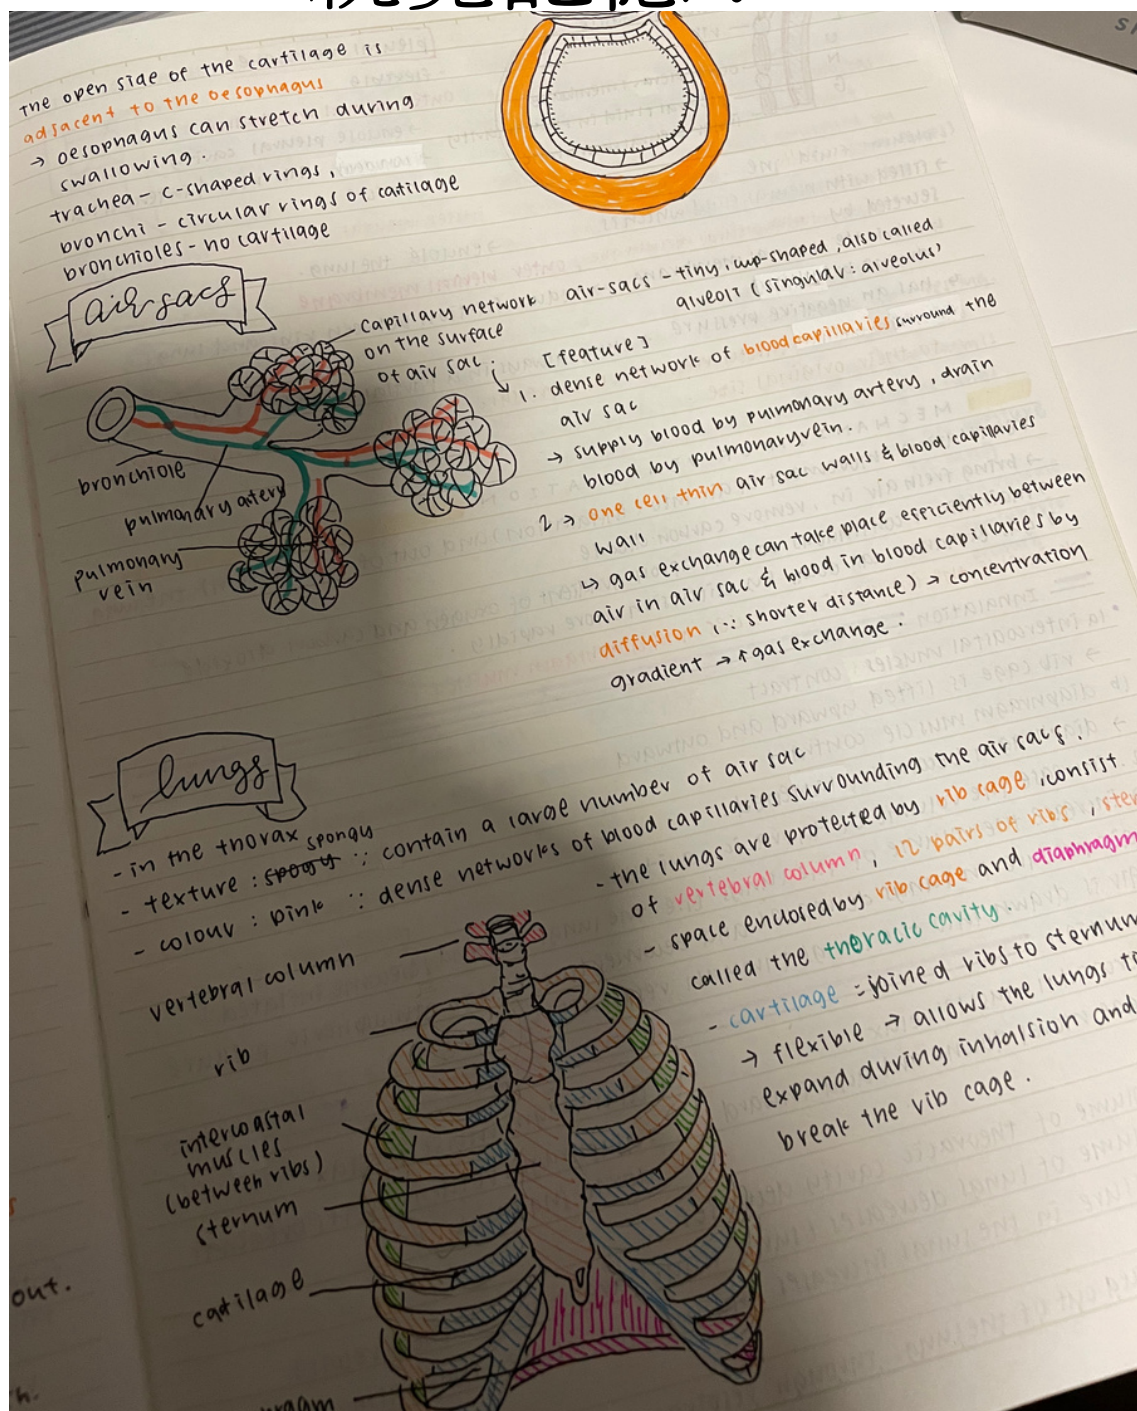 the open side of the cartilage is
adjacent to the oesophagus
→ oesophagus can stretch during
swallowing.
trachea - c-shaped rings,
bronchi - circular rings of catilage
bronchioles - no cartilage
air sacs
capillary network
on the surface
of air sac.
bronchiole
pulmonary artery
pulmonary
vein
air-sacs - tiny, cup-shaped, also called
alveoli (singular: alveolus)
[feature]
1. dense network of blood capillaries surround the
air sac
→ supply blood by pulmonary artery, drain
blood by pulmonary vein.
2 → one cell thin air sac walls & blood capillaries
wall
↳ gas exchange can take place efficiently between
air in air sac & blood in blood capillaries by
diffusion (∵ shorter distance) → concentration
gradient → ↑ gas exchange.
lungs
- in the thorax
- texture : spogy spongy ∵ contain a large number of air sac
- colour : pink ∵ dense networks of blood capillaries surrounding the air sacs.
- the lungs are protected by rib cage, consist
of vertebral column, 12 pairs of ribs, ster
- space enclosed by rib cage and diaphragm
called the thoracic cavity.
- cartilage = joined ribs to sternum
→ flexible → allows the lungs to
expand during inhalsion and
break the rib cage.
vertebral column
rib
intercoastal
muscles
(between ribs)
sternum
catilage
hragm
out.
h.